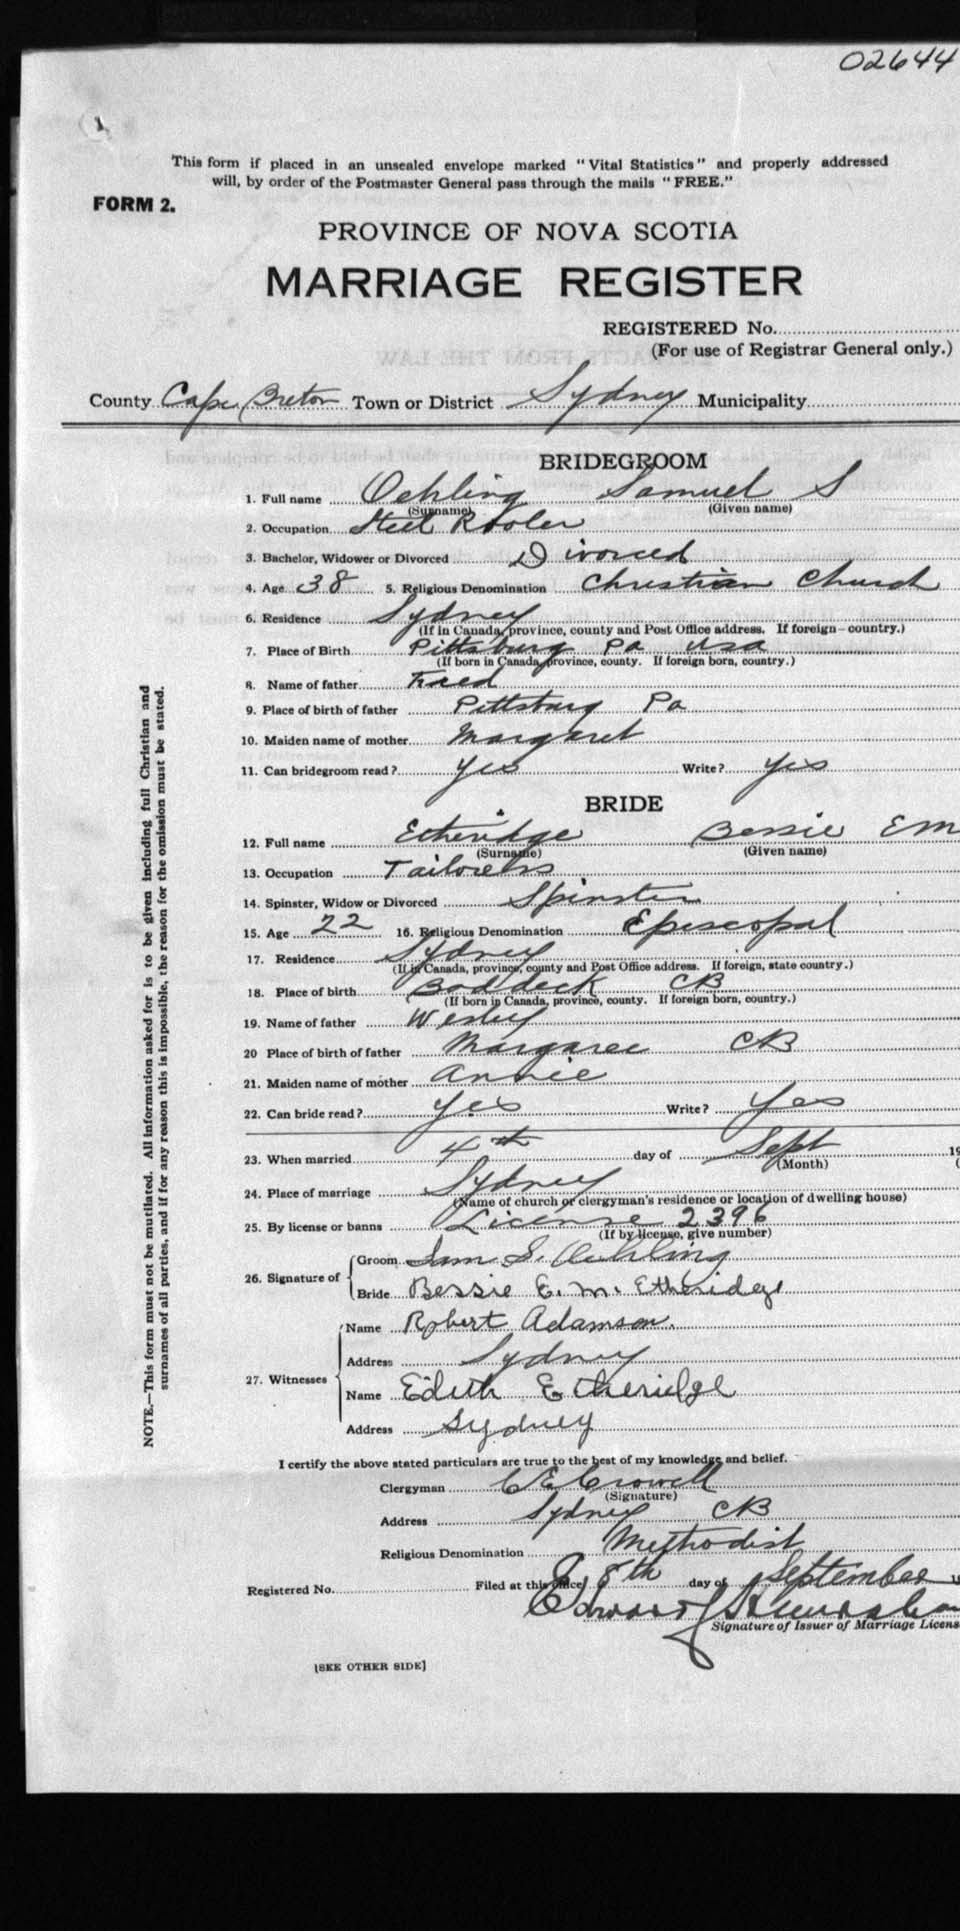 02644
1
This form if placed in an unsealed envelope marked "Vital Statistics" and properly addressed
will, by order of the Postmaster General pass through the mails "FREE."
FORM 2.
PROVINCE OF NOVA SCOTIA
MARRIAGE REGISTER
REGISTERED No.
(For use of Registrar General only.)
County Cape Breton Town or District Sydney Municipality
BRIDEGROOM
1. Full name Oehling Samuel S
(Surname) (Given name)
2. Occupation Steel Rooler
3. Bachelor, Widower or Divorced Divorced
4. Age 38 5. Religious Denomination Christian Church
6. Residence Sydney
(If in Canada, province, county and Post Office address. If foreign—country.)
7. Place of Birth Pittsburg Pa Usa
(If born in Canada, province, county. If foreign born, country.)
8. Name of father Fred
9. Place of birth of father Pittsburg Pa
10. Maiden name of mother Margaret
11. Can bridegroom read? Yes Write? Yes
BRIDE
12. Full name Etheridge Bessie E M
(Surname) (Given name)
13. Occupation Tailoress
14. Spinster, Widow or Divorced Spinster
15. Age 22 16. Religious Denomination Episcopal
17. Residence Sydney
(If in Canada, province, county and Post Office address. If foreign, state country.)
18. Place of birth Baddeck CB
(If born in Canada, province, county. If foreign born, country.)
19. Name of father Wesley
20 Place of birth of father Margaree CB
21. Maiden name of mother Annie
22. Can bride read? Yes Write? Yes
23. When married 4th day of Sept 19
(Month) (
24. Place of marriage Sydney
(Name of church or clergyman's residence or location of dwelling house)
25. By license or banns License 2396
(If by license, give number)
26. Signature of Groom Sam S. Oehling
Bride Bessie E. M. Etheridge
27. Witnesses Name Robert Adamson.
Address Sydney
Name Edith Etheridge
Address Sydney
I certify the above stated particulars are true to the best of my knowledge and belief.
Clergyman C E Crowell
(Signature)
Address Sydney CB
Religious Denomination Methodist
Registered No. Filed at this office 8th day of September
Edward
Signature of Issuer of Marriage Licens
[SEE OTHER SIDE]
NOTE.—This form must not be mutilated. All information asked for is to be given including full Christian and
surnames of all parties, and if for any reason this is impossible, the reason for the omission must be stated.